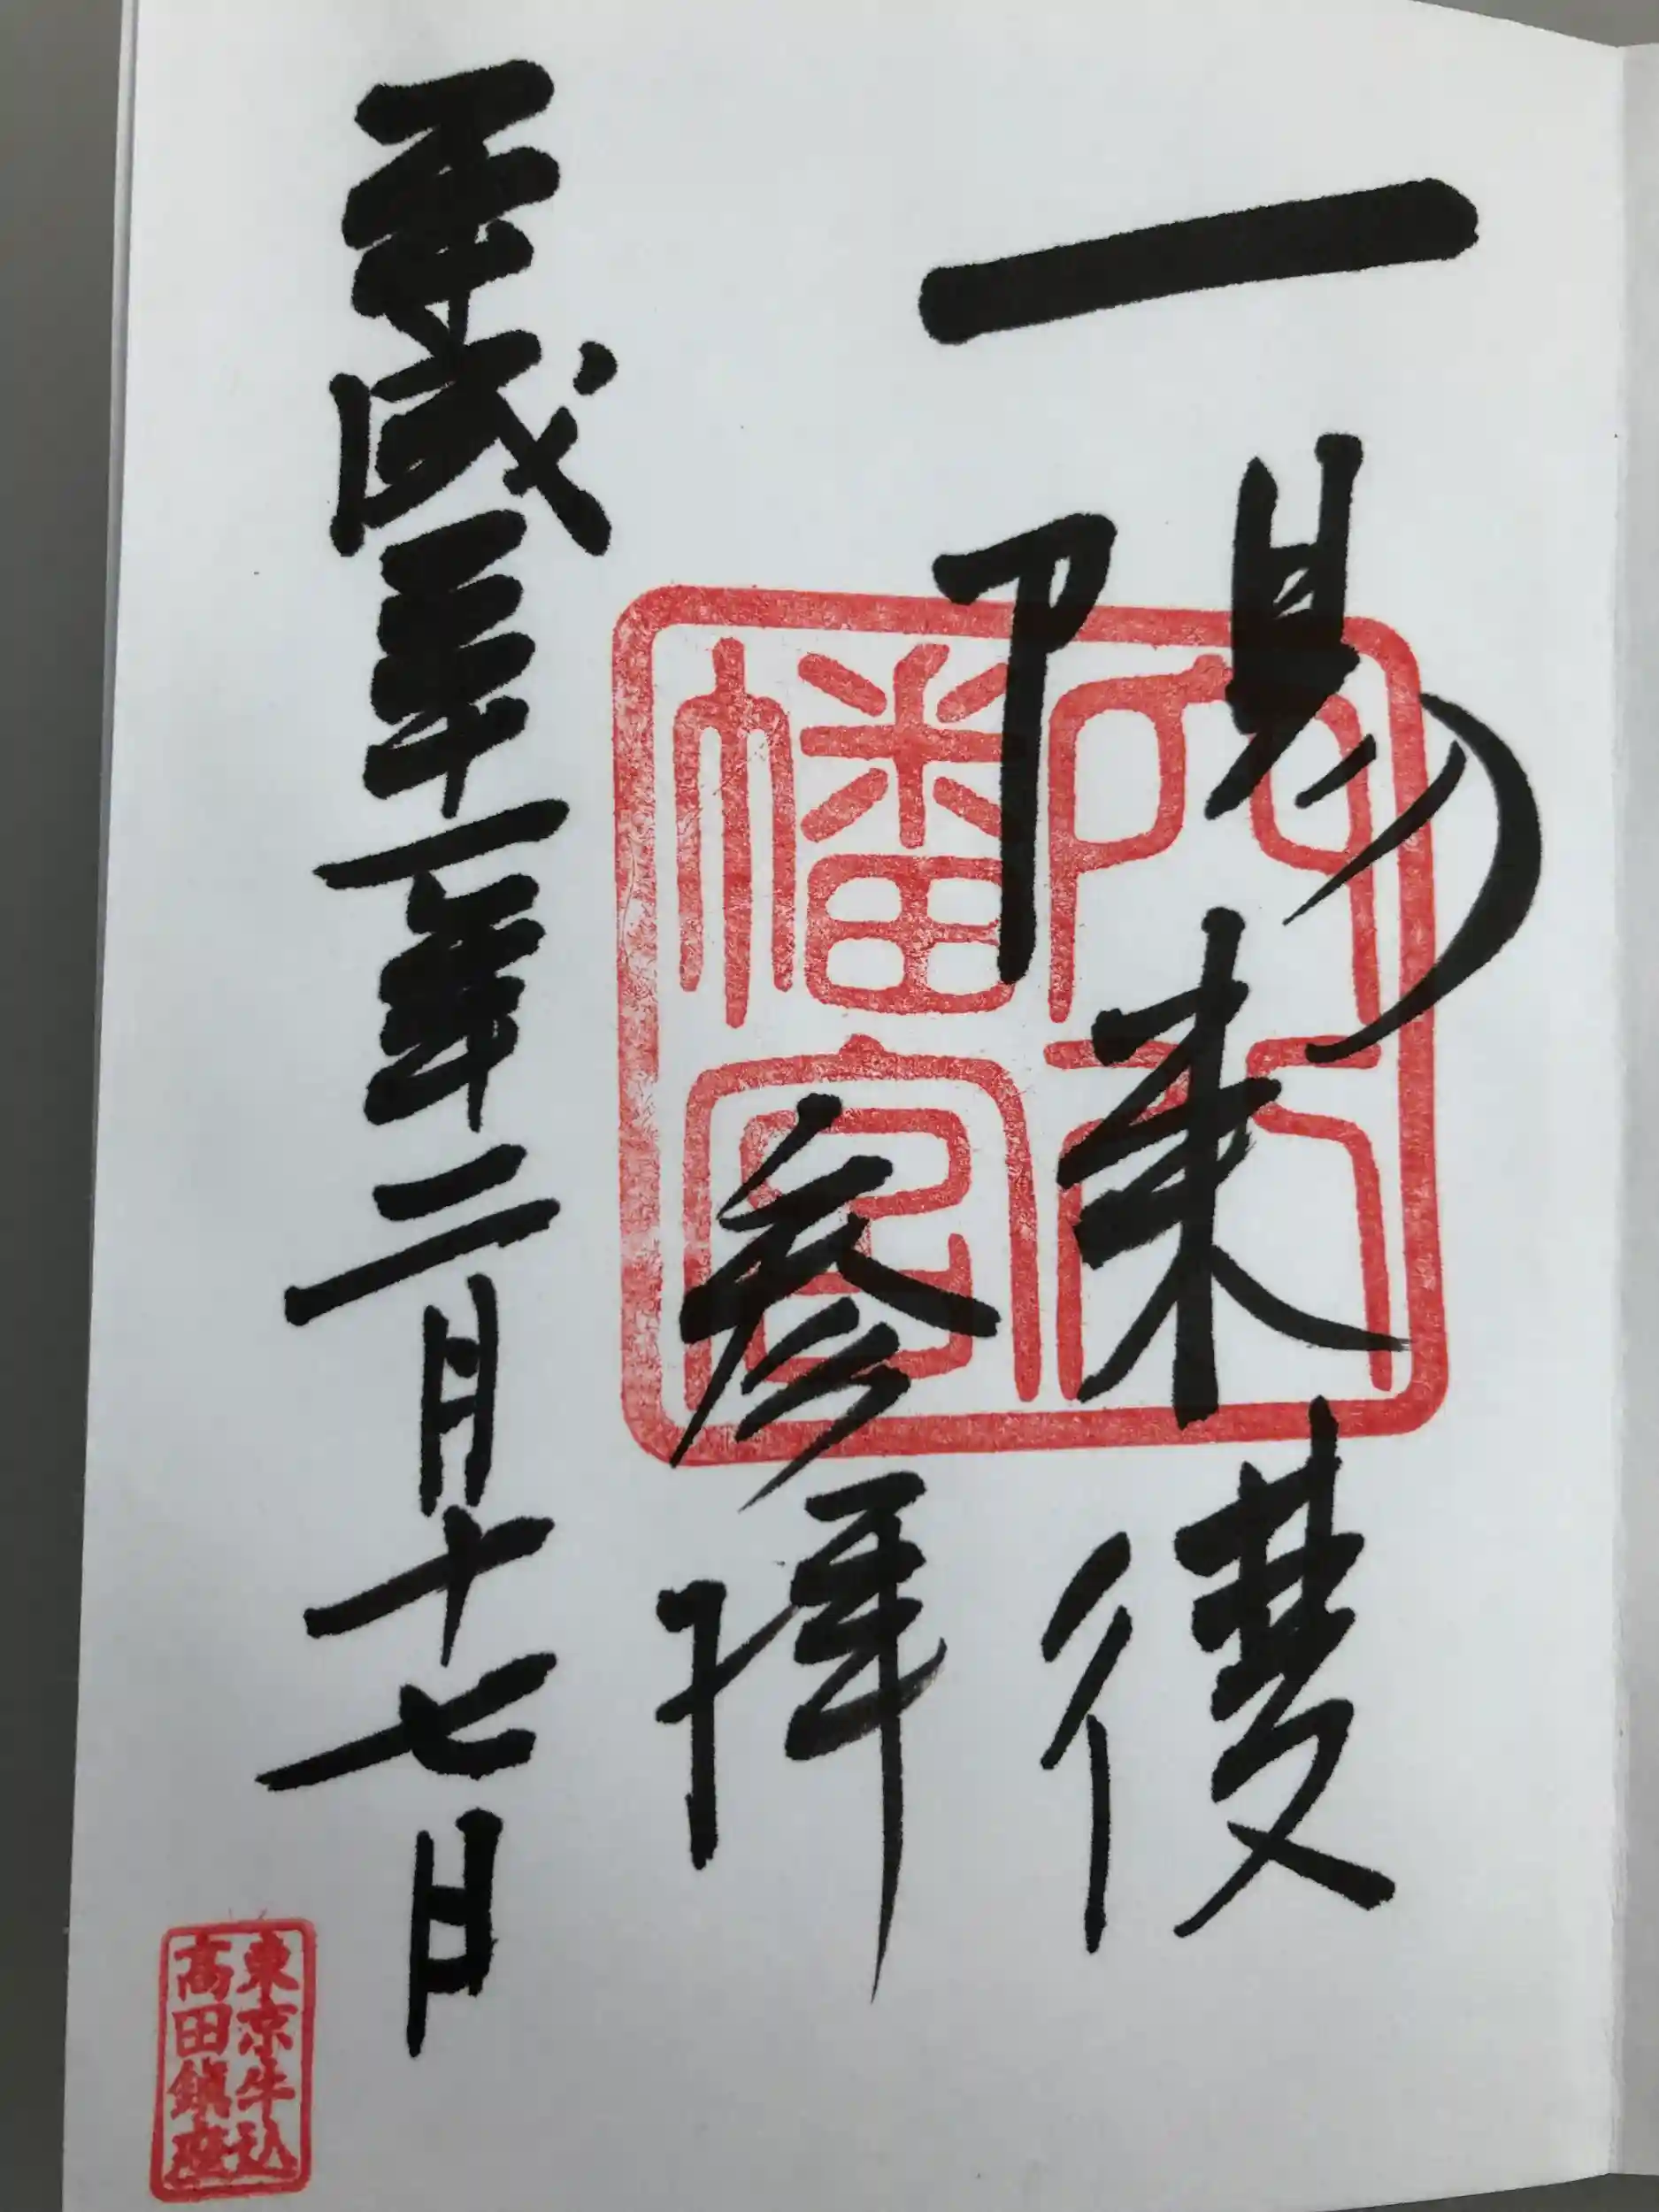 一陽来復
参拝
平成三十一年二月十七日
穴八
幡宮
東京牛込
高田鎮座